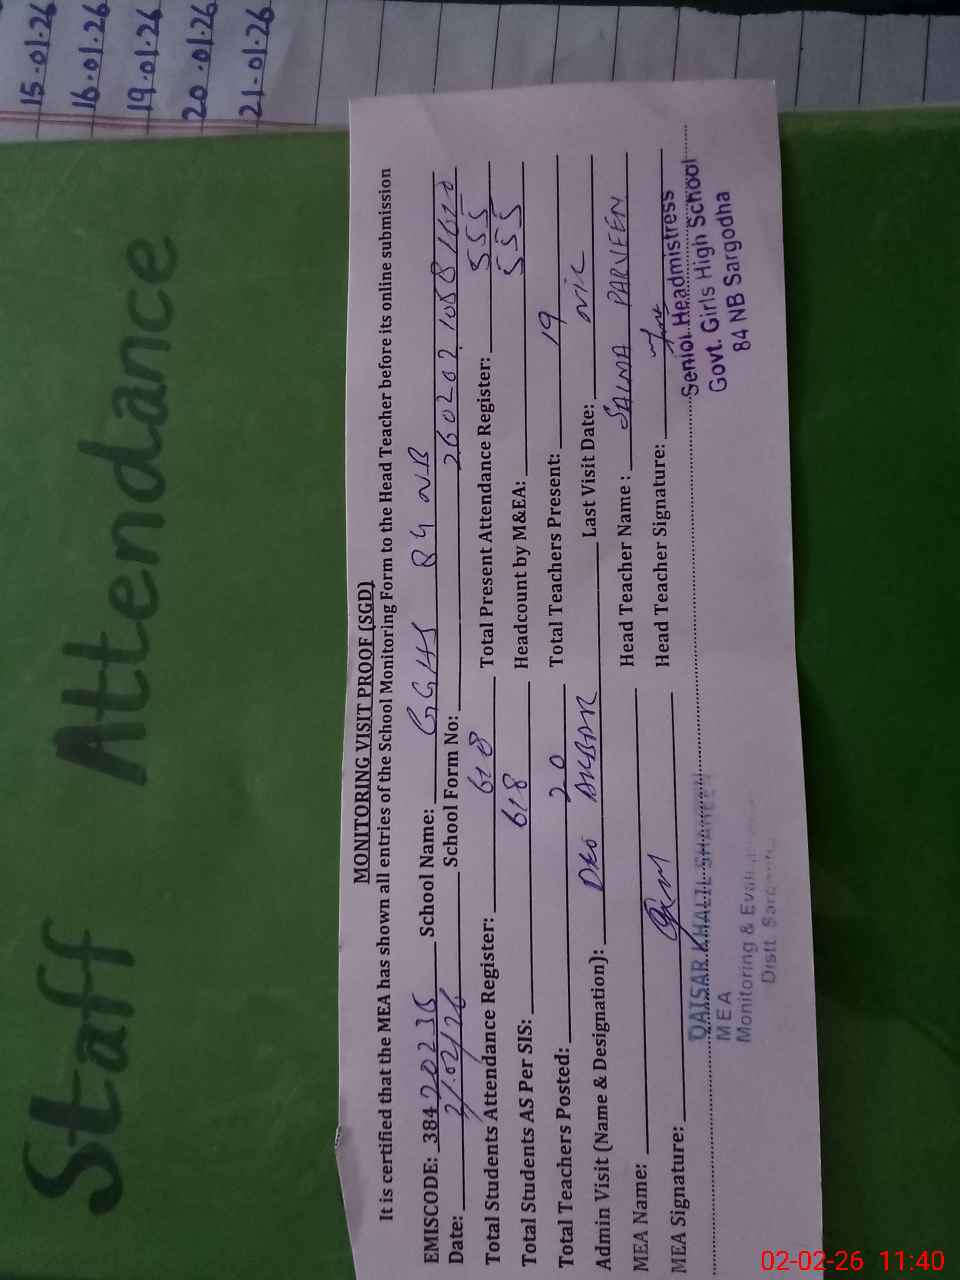 15.01.26
16.01.26
19.01.26
20.01.26
21.01.26
Staff Attendance
MONITORING VISIT PROOF (SGD)
It is certified that the MEA has shown all entries of the School Monitoring Form to the Head Teacher before its online submission
EMISCODE: 38420236 School Name: GGHS 84 NB
Date: 2/02/26 School Form No:
Total Students Attendance Register: 618 Total Present Attendance Register: 555
Total Students AS Per SIS: 618 Headcount by M&EA: 555
Total Teachers Posted: 20 Total Teachers Present: 19
Admin Visit (Name & Designation): DEO AKBAR Last Visit Date: NIL
MEA Name: Head Teacher Name: SALMA PARVEEN
MEA Signature: Head Teacher Signature:
QAISAR KHALIL SHAHEEN
MEA
Monitoring &
Distt.
Senior Headmistress
Govt. Girls High School
84 NB Sargodha
02-02-26 11:40